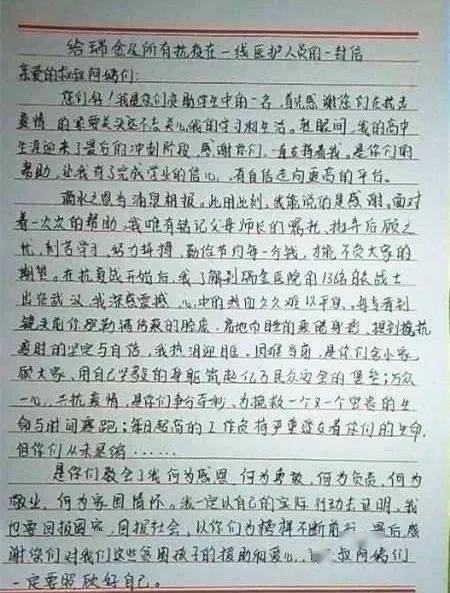 给瑞金及所有抗疫在一线医护人员的一封信
亲爱的叔叔阿姨们:
您们好!我是你们资助学生中的一名,首先感谢你们在抗击
疫情的紧要关头还不忘关心我的学习和生活。转眼间,我的高中
生涯迎来了最后的冲刺阶段,感谢你们,一直支持着我。是你们的
帮助,让我有了完成学业的信心,有自信走向更高的平台。
滴水之恩当涌泉相报。此时此刻,我能说的是感谢。面对
着一次次的帮助,我唯有铭记父母师长的嘱托,抛弃后顾之
忧,刻苦学习,努力拼搏,勤俭节约每一分钱,才能不负大家的
期望。在抗疫战开始后,我了解到瑞金医院的13名白衣战士
出征武汉,我深感震撼,心中的热血久久难以平复,每当看到
镜头前你那勒满伤痕的脸庞,
疫时的坚定与自信,我热泪迎眶。困难当前,是你们舍小家,
顾大家,用自己坚毅的身躯筑起亿万民众安全的堡垒;万众
一心,共抗疫情,是你们争分夺秒,为挽救一个又一个宝贵的生
命与时间赛跑;每日超高的工作负荷严重透支着你们的生命,
但你们从未退缩……
是你们教会了我何为感恩,何为勇敢,何为负责,何为
敬业,何为家国情怀。我一定以自己的实际行动去证明,我
也要回报国家,回报社会,以你们为榜样不断前行。最后,感
谢你们对我们这些贫困孩子的援助和爱心,叔叔阿姨们
一定要照顾好自己。